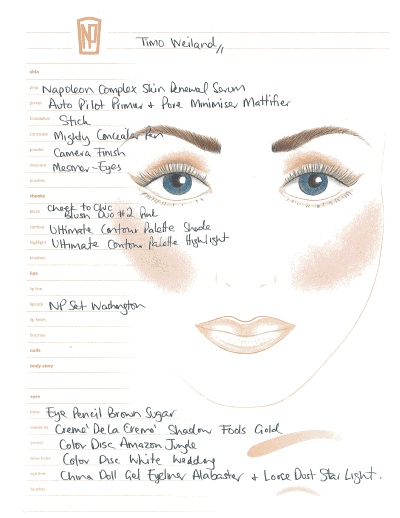 NP
Timo Weiland //
skin
prep Napoleon Complex Skin Renewal Serum
primer Auto Pilot Primer + Pore Minimiser Mattifier
foundation Stick
concealer Mighty Concealer Pen
powder Camera Finish
mascara Mesmer-Eyes
brushes
cheeks
Cheek to Chic
blush Blush Duo #2 Pink
contour Ultimate Contour Palette Shade
highlight Ultimate Contour Palette Highlight
brushes
lips
lip liner
lipstick NP Set Washington
brushes
nails
body-story
eyes
Eye Pencil Brown Sugar
Creme' De La Creme' Shadow Fools Gold
Color Disc Amazon Jungle
Color Disc White Wedding
China Doll Gel Eyeliner Alabaster + Loose Dust Star Light.
brushes